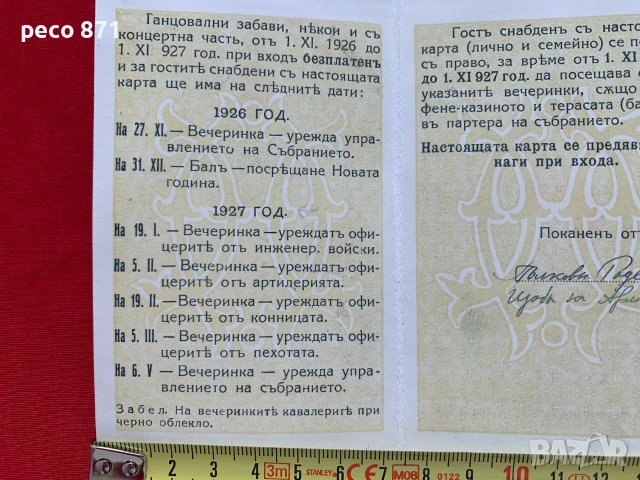 peco 871
Танцовални забави, нѣкои и съ
концертна часть, отъ 1. XI. 1926 до
1. XI. 927 год. при входъ безплатенъ
и за гоститѣ снабдени съ настоящата
карта ще има на слѣднитѣ дати:
1926 ГОД.
На 27. XI. — Вечеринка — урежда упра-
влението на Събранието.
На 31. XII. — Балъ — посрѣщане Новата
година.
1927 ГОД.
На 19. I. — Вечеринка — уреждатъ офи-
церитѣ отъ инженер. войски.
На 5. II. — Вечеринка — уреждатъ офи-
церитѣ отъ артилерията.
На 19. II. — Вечеринка — уреждатъ офи-
церитѣ отъ конницата.
На 5. III. — Вечеринка — уреждатъ офи-
церитѣ отъ пехотата.
На 6. V — Вечеринка — урежда упра-
влението на събранието.
Забел. На вечеринкитѣ кавалеритѣ при
черно облекло.
Гостъ снабденъ съ насто
карта (лично и семейно) се по
съ право, за време отъ 1. XI
до 1. XI 927 год. да посещава
указанитѣ вечеринки, сѫщо
фене-казиното и терасата (ба
въ партера на събранието.
Настоящата карта се предяв
наги при входа.
Поканенъ отъ
2 3 4 3m STANLEY 6 CE 7 M08 8 0122 9 10 11 12
BAZAR